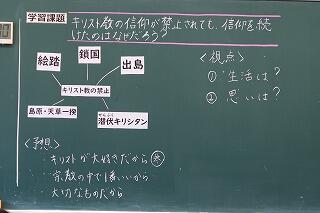 学習課題
キリスト教の信仰が禁止されても、信仰を続
けたのはなぜだろう？
絵踏
鎖国
出島
キリスト教の禁止
島原・天草一揆
せんぷく
潜伏キリシタン
＜視点＞
① 生活は？
② 思いは？
＜予想＞
・キリストが大好きだから
・宗教の中で1番いいから
・大切なものだから